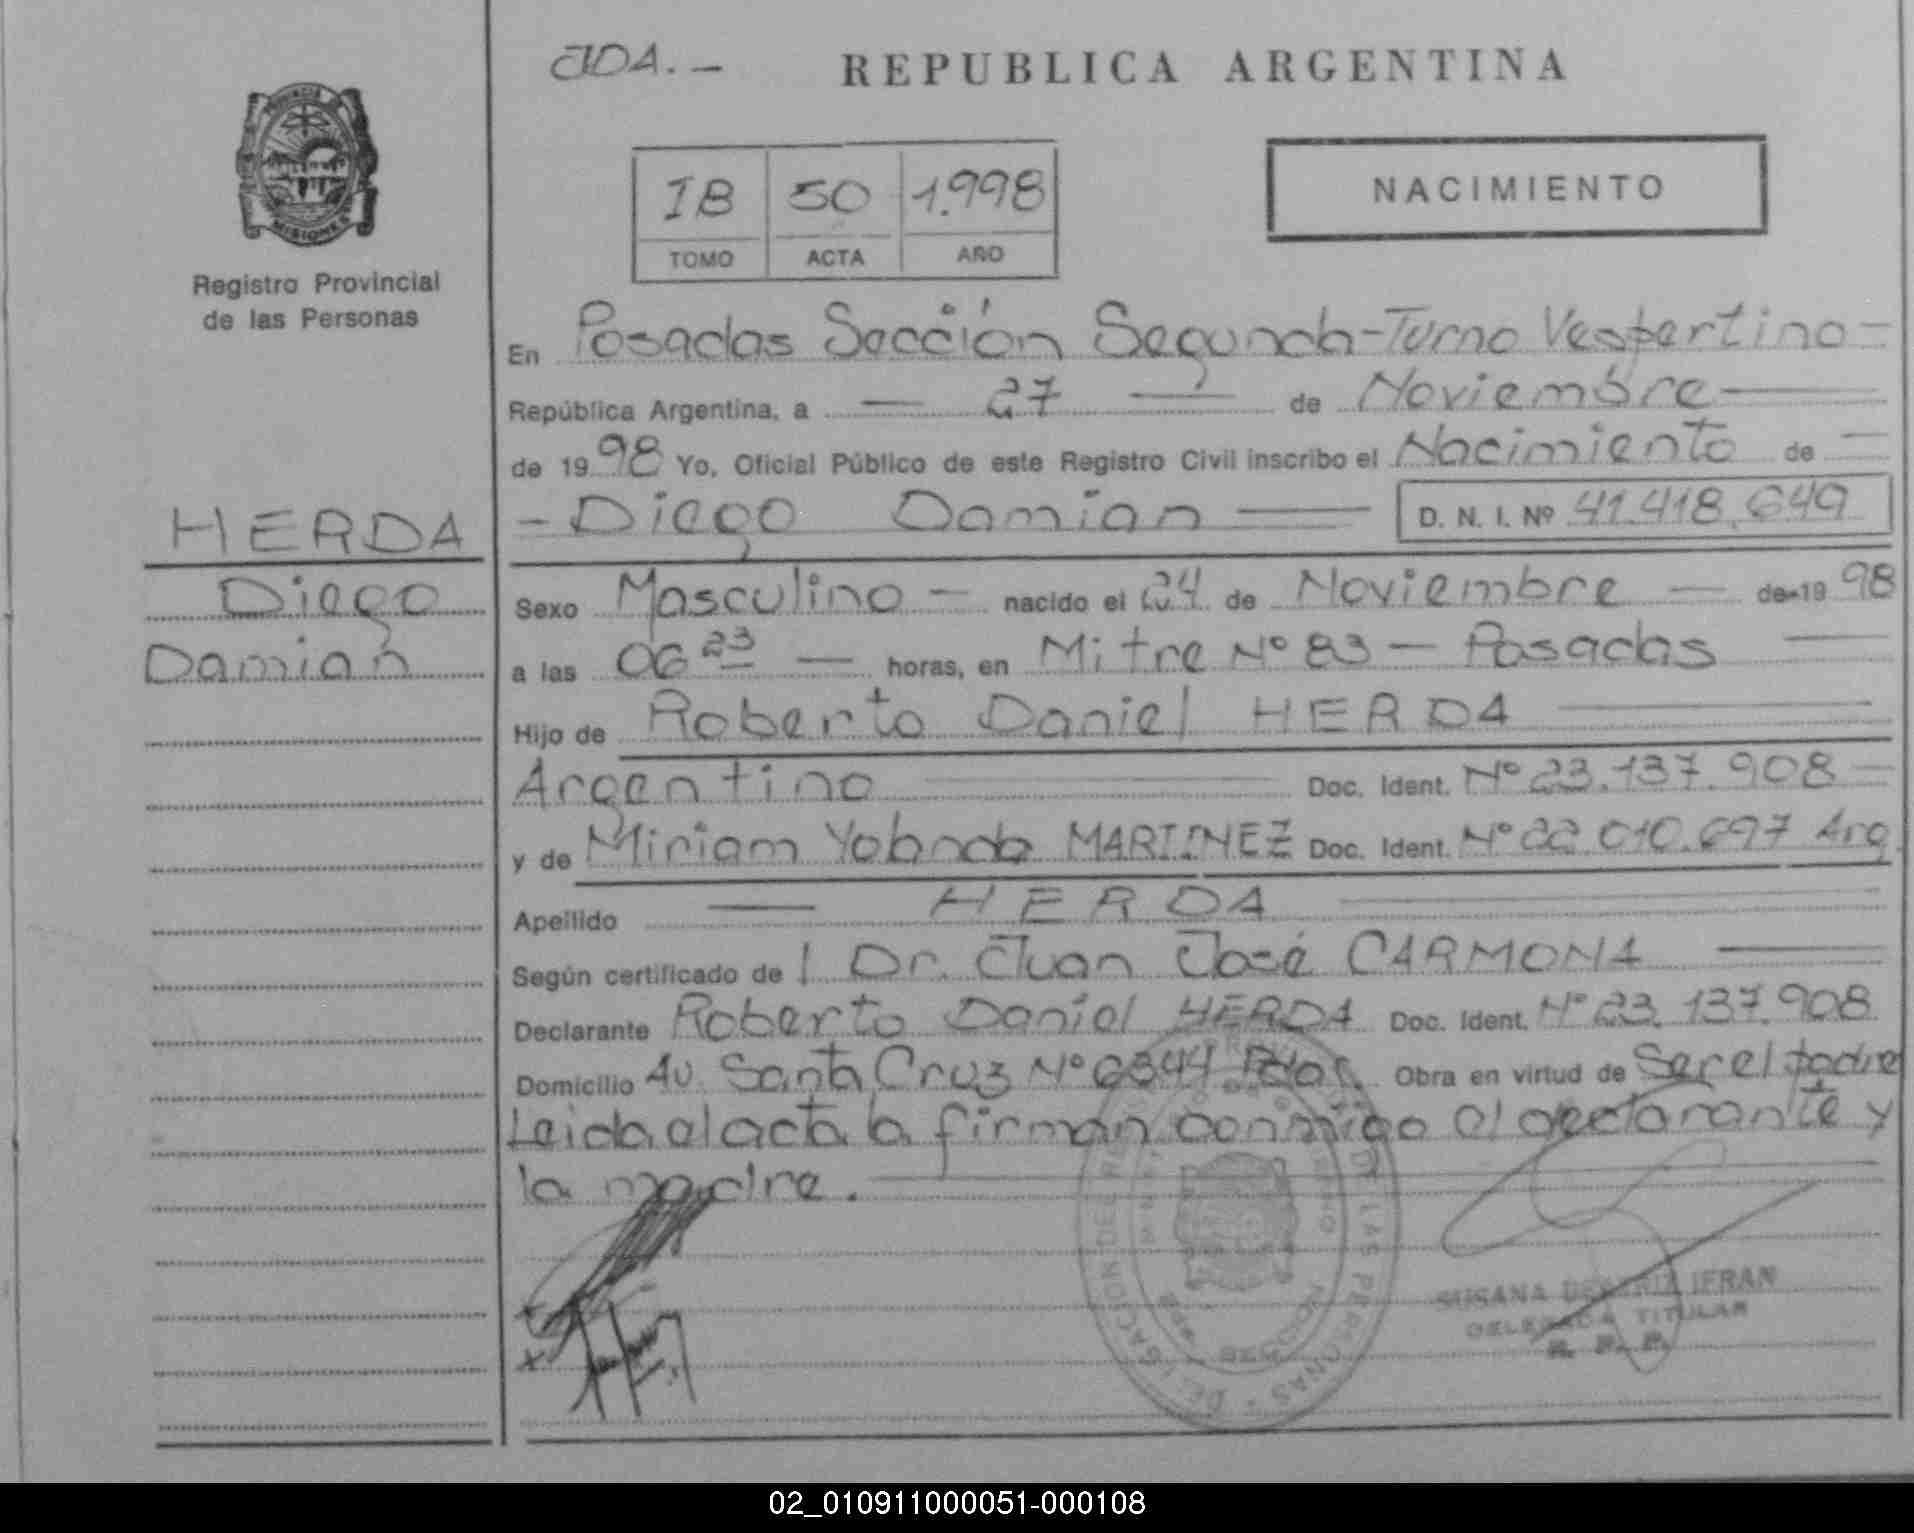 JDA.-
REPUBLICA ARGENTINA
PROVINCIA DE
MISIONES
Registro Provincial
de las Personas
IB 50 1.998
TOMO ACTA AÑO
NACIMIENTO
En Posadas Sección Segunda-Turno Vespertino-
República Argentina, a — 27 — de Noviembre —
de 19 98 Yo, Oficial Público de este Registro Civil inscribo el Nacimiento de —
- Diego Damian — D. N. I. Nº 41.418.649
HERDA
Diego
Damian
Sexo Masculino — nacido el 24 de Noviembre — de 19 98
a las 06 23 — horas, en Mitre Nº 83 — Posadas —
Hijo de Roberto Daniel HERDA —
Argentino — Doc. Ident. Nº 23.137.908 —
y de Miriam Yolanda MARTINEZ Doc. Ident. Nº 22.010.697 Arg
Apellido — HERDA —
Según certificado de l Dr. Juan José CARMONA —
Declarante Roberto Daniel HERDA Doc. Ident. Nº 23.137.908
Domicilio Av. Santa Cruz Nº 6344 Pdas. Obra en virtud de Ser el padre
Leida el acta la firman conmigo el declarante y
la madre. —
DELEGACION DEL REGISTRO PROVINCIAL DE LAS PERSONAS
SUSANA BEATRIZ IFRAN
DELEGADA TITULAR
R. P. P.
02_010911000051-000108